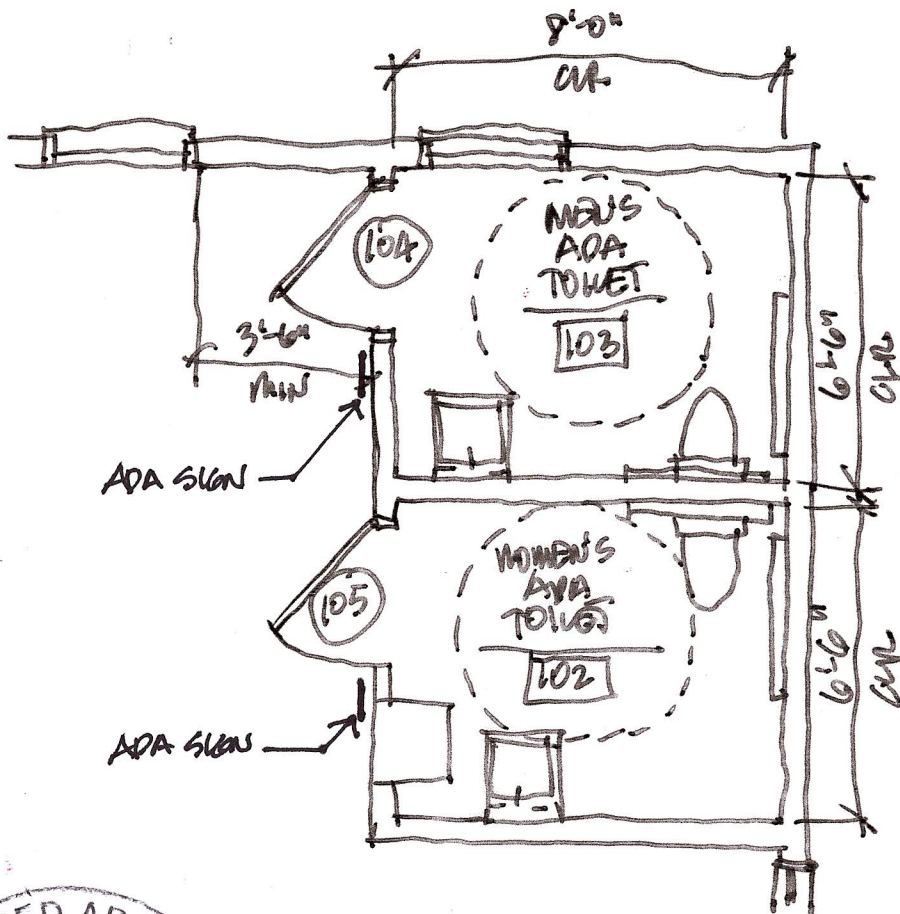 8'-0"
CLR
104
MENS
ADA
TOILET
103
3'-6"
MIN
6'-6"
CLR
ADA SIGN
105
WOMENS
ADA
TOILET
102
6'-6"
CLR
ADA SIGN